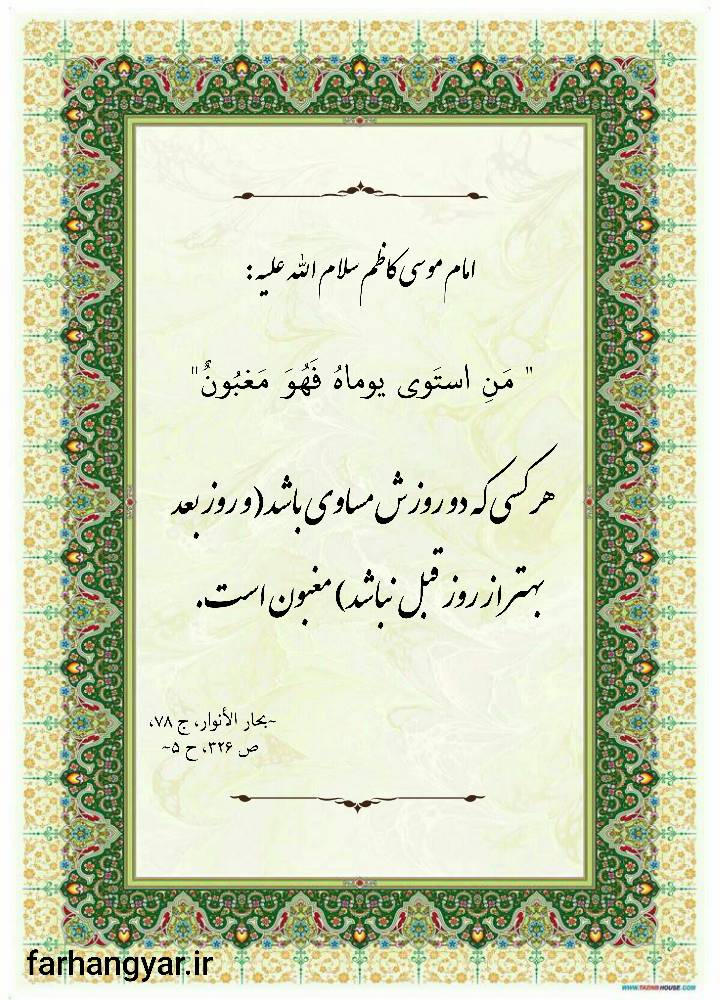 امام موسی کاظم سلام الله علیه:
" مَنِ استَوی یوماهُ فَهُوَ مَغبُونٌ"
هر کسی که دو روزش مساوی باشد(و روز بعد
بهتر از روز قبل نباشد) مغبون است.
~بحار الأنوار، ج ۷۸،
ص ۳۲۶، ح ۵~
farhangyar.ir
WWW.TAZINHOUSE.COM